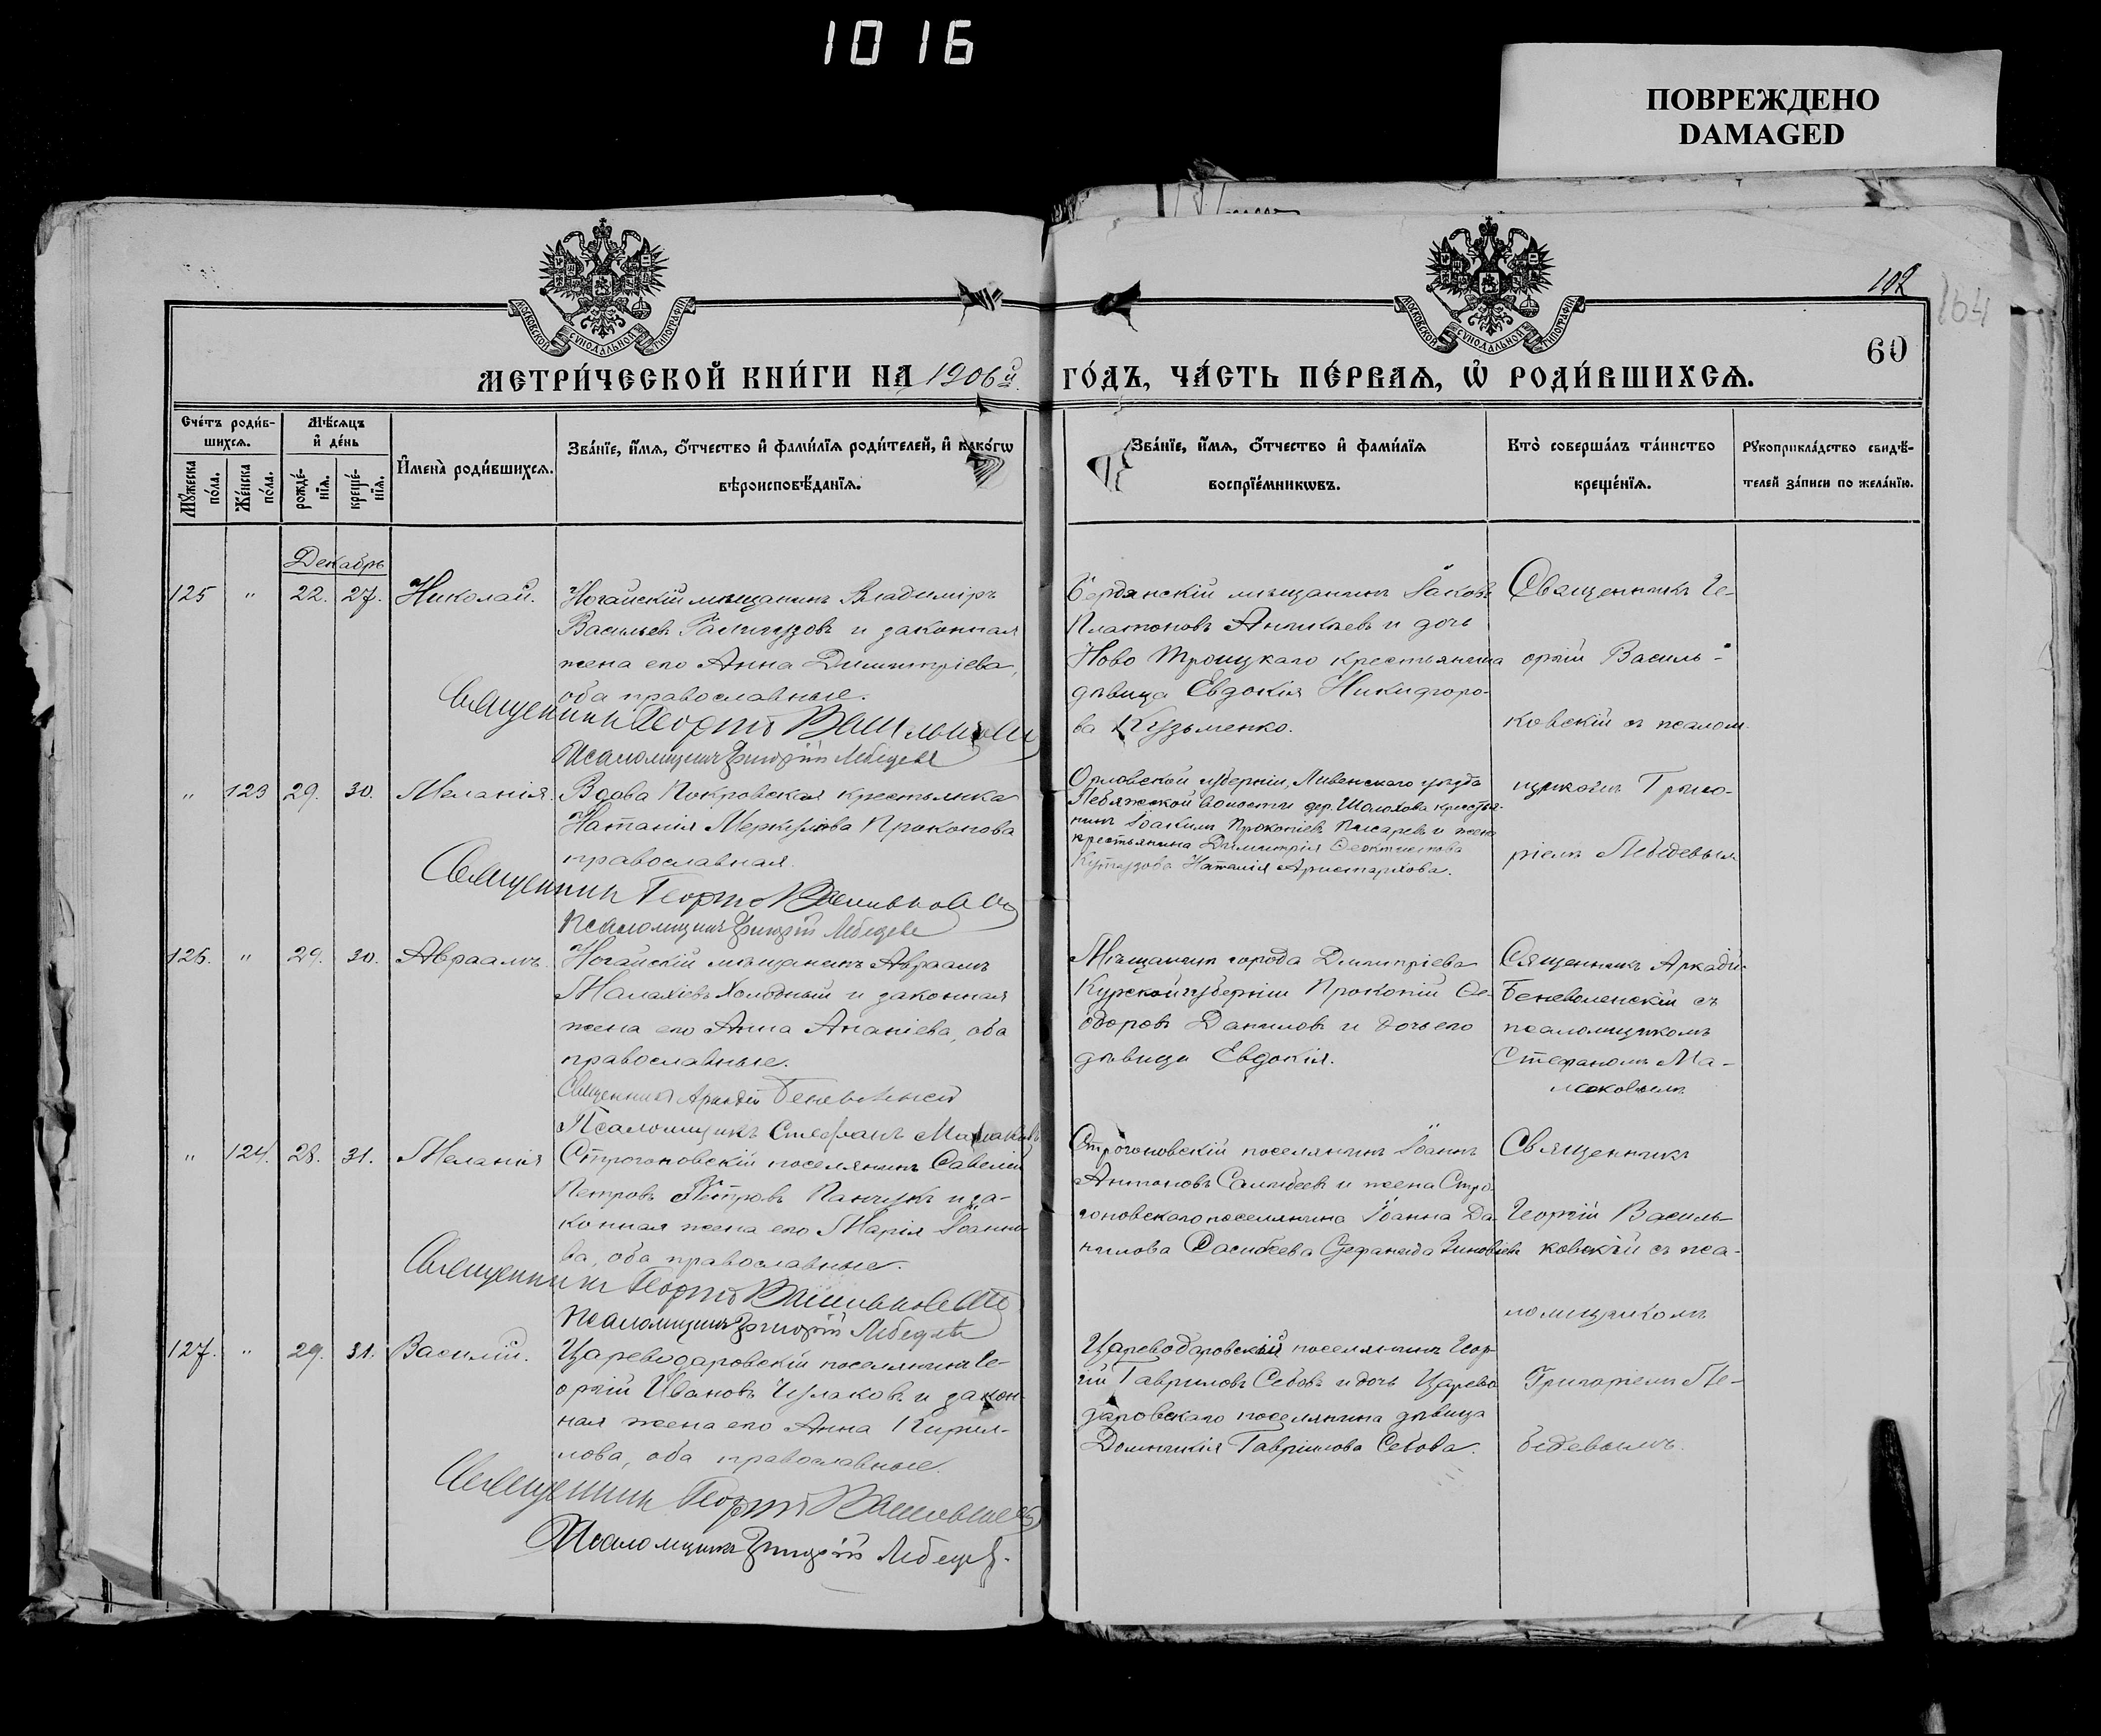 1016
ПОВРЕЖДЕНО
DAMAGED
МОСКОВСКОЙ СУНОДАЛЬНОЙ ТИПОГРАФИИ
МОСКОВСКОЙ СУНОДАЛЬНОЙ ТИПОГРАФИИ
102
164
60
МЕТРИ́ЧЕСКОЙ КНИ́ГИ НА 1906й
ГО́ДЪ, ЧА́СТЬ ПЕ́РВАѦ, Ѡ҆ РОДИ́ВШИХСѦ.
Сче́тъ роди́в-
шихсѧ.
Мꙋжеска
по́ла.
Же́нска
по́ла.
Мѣ́сѧцъ
и҆ де́нь
рожде́-
нїѧ.
креще́-
нїѧ.
И҆мена̀ роди́вшихсѧ.
Зва́нїе, и҆́мѧ, о҆́тчество и҆ фами́лїѧ роди́телей, и҆ како́гѡ
вѣроисповѣ́данїѧ.
Зва́нїе, и҆́мѧ, о҆́тчество и҆ фами́лїѧ
воспрїе́мникѡвъ.
Кто̀ соверша́лъ та́инство
креще́нїѧ.
Рꙋкоприкла́дство свидѣ́-
телей за́писи по жела́нїю.
Декабрь
125 " 22. 27. Николай.
Ногайскій мѣщанинъ Владиміръ
Васильевъ и законная
жена его Анна Димитріева,
оба православные.
Священникъ Георгій Васильковскій
Псаломщикъ Григорій Лебедевъ
Бердянскій мѣщанинъ Іаковъ
Платоновъ и дочь
Ново Троицкаго крестьянина
дѣвица Евдокія Никифоро-
ва Кузьменко.
Священникъ Ге-
оргій Василь-
ковскій съ псалом-
щикомъ Григо-
ріемъ Лебедевымъ
" 123 29. 30. Меланія.
Вдова Покровская крестьянка
Наталія Меркуріова Прокопова
православная.
Священникъ Георгій Васильковскій
Псаломщикъ Григорій Лебедевъ
Орловской губерніи, Ливенскаго уѣзда
волости дер. Шолохова крестья-
нинъ Іоакимъ Прокопіевъ Писаревъ и жена
крестьянина Димитрія Ѳеоктистова
Кутузова Наталія Аристархова.
126. " 29. 30. Авраамъ.
Ногайскій мѣщанинъ Авраамъ
Малахіевъ Холодный и законная
жена его Анна Ананіева, оба
православные.
Священникъ Аркадій Беневоленскій
Псаломщикъ Стефанъ
Мѣщанинъ города Димитріева
Курской губерніи Прокопій Ѳе-
одоровъ Даниловъ и дочь его
дѣвица Евдокія.
Священникъ Аркадій
Беневоленскій съ
псаломщикомъ
Стефаномъ Ма-
" 124. 28. 31. Меланія
Строгоновскій поселянинъ Савелій
Петровъ Панчукъ и за-
конная жена его Марія Іоанно-
ва, оба православные.
Священникъ Георгій Васильковскій
Псаломщикъ Григорій Лебедевъ
Строгоновскій поселянинъ Іоаннъ
Антоновъ и жена Стро-
гоновскаго поселянина Іоанна Да-
нилова
Священникъ
Георгій Василь-
ковскій съ пса-
ломщикомъ
Григоріемъ Ле-
бедевымъ.
127. " 29. 31. Василій.
Цареводаровскій поселянинъ Ге-
оргій Ивановъ Чулаковъ и закон-
ная жена его Анна Кирил-
лова, оба православные.
Священникъ Георгій Васильковскій
Псаломщикъ Григорій Лебедевъ.
Цареводаровскій поселянинъ Геор-
гій Гавриловъ Севовъ и дочь Царево-
даровскаго поселянина дѣвица
Домникія Гавріилова Севова.